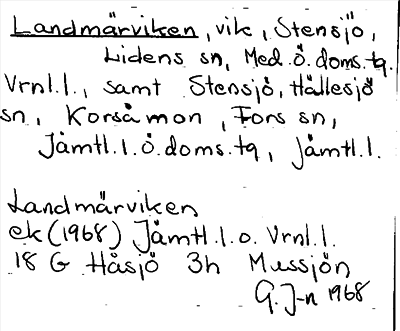 Landmärviken, vik, Stensjö,
Lidens sn, Med. ö. doms. tg.
Vrnl. l., samt Stensjö, Hällesjö
sn, Korsåmon, Fors sn,
Jämtl. l. ö. doms. tg, Jämtl. l.
Landmärviken
ek (1968) Jämtl. l. o. Vrnl. l.
18 G Håsjö 3h Mussjön
G. J-n 1968